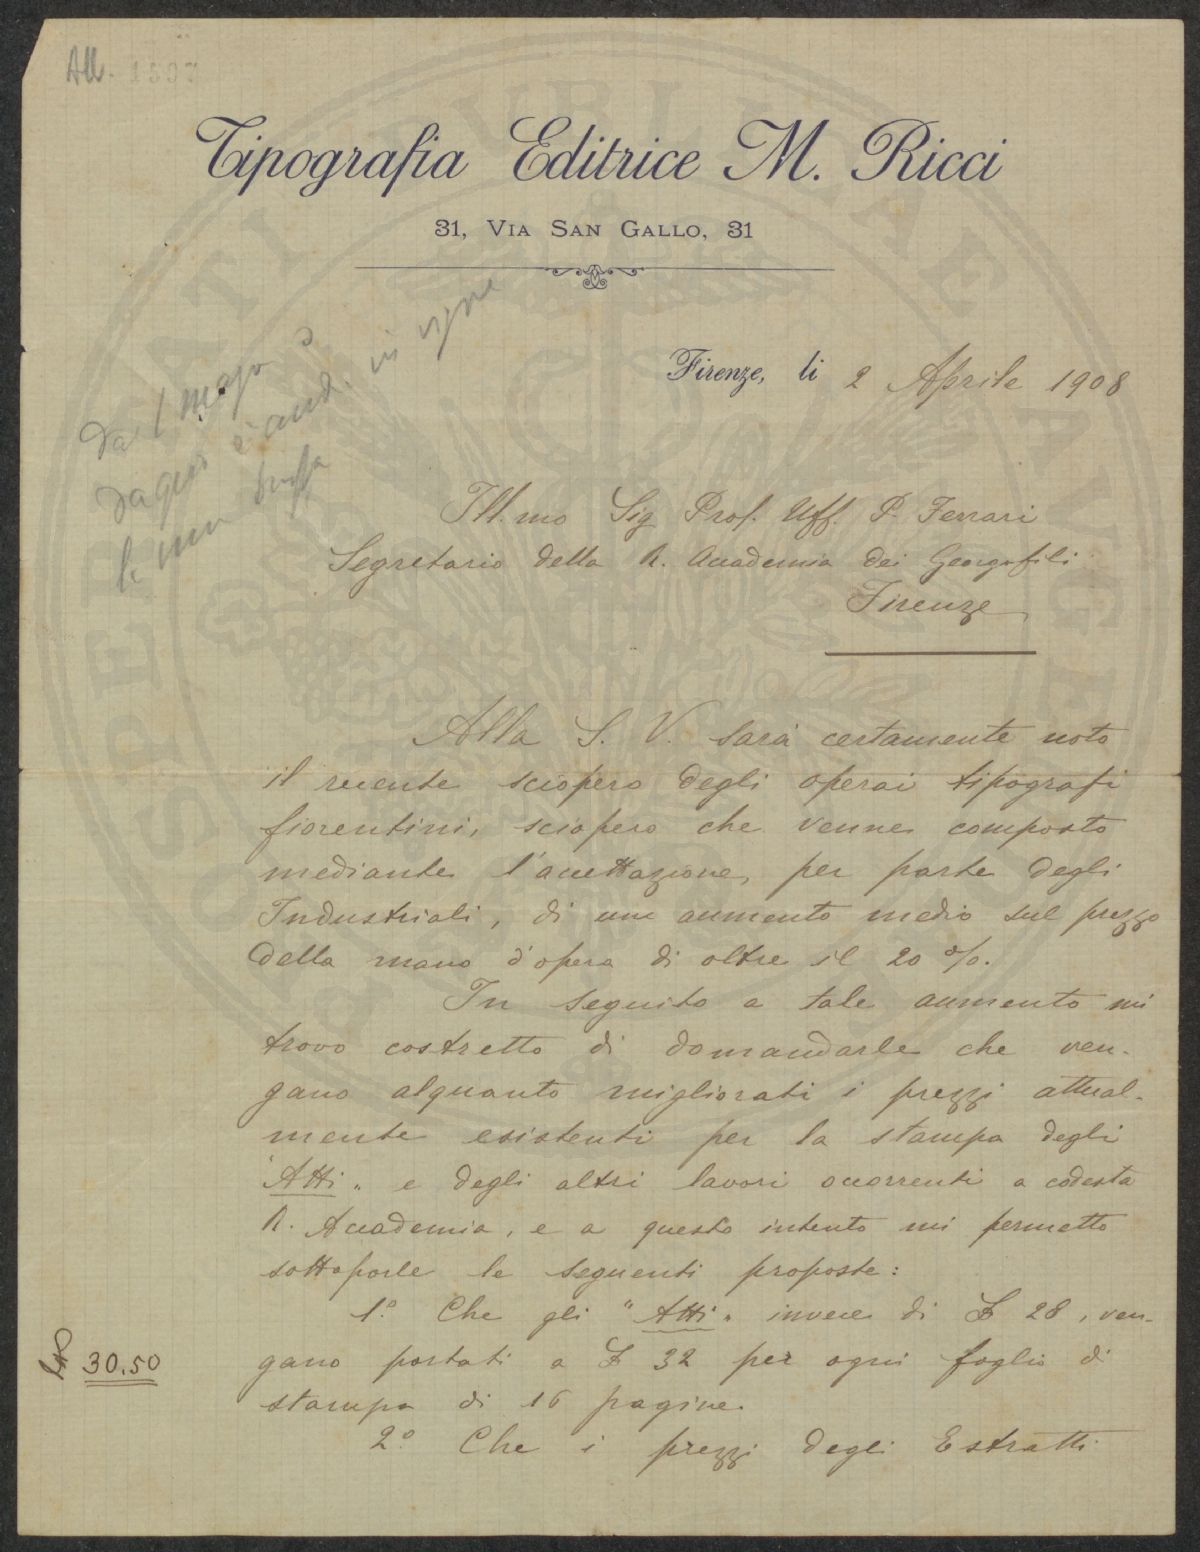 All. 1807
Tipografia Editrice M. Ricci
31, Via San Gallo, 31
Firenze, li 2 Aprile 1908
da 1 maggio
Ill.mo Sig Prof. Uff. P. Ferrari
Segretario della R. Accademia dei Georgofili
Firenze
Alla S. V. sarà certamente noto
il recente sciopero degli operai tipografi
fiorentini, sciopero che venne composto
mediante l'accettazione, per parte degli
Industriali, di un aumento medio sul prezzo
della mano d'opera di oltre il 20 %.
In seguito a tale aumento mi
trovo costretto di domandarle che ven-
gano alquanto migliorati i prezzi attual-
mente esistenti per la stampa degli
"Atti" e degli altri lavori occorrenti a codesta
R. Accademia, e a questo intento mi permetto
sottoporle le seguenti proposte:
1.° Che gli "Atti" invece di £ 28, ven-
30.50 gano portati a £ 32 per ogni foglio di
stampa di 16 pagine.
2.° Che i prezzi degli Estratti